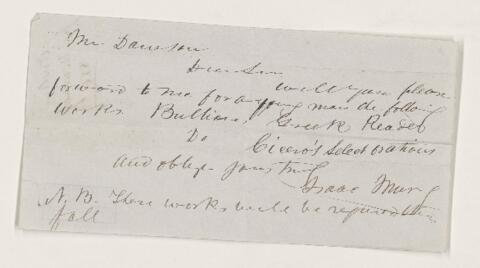 Mr. Dawson
Dear Sir
will you please
forward to me for a young man the following
works. Bullions, Greek Reader
Do Cicero's Select orations
and oblige yours truly
Isaac
N.B. These works will be required this
fall